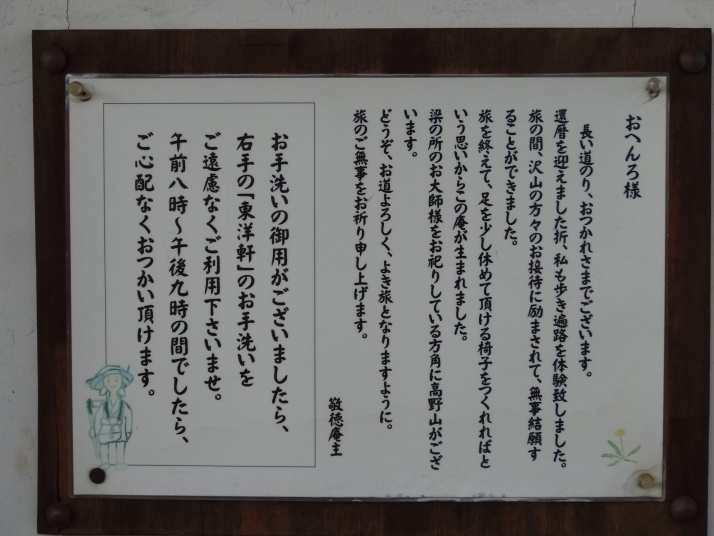 おへんろ様
長い道のり、おつかれさまでございます。
還暦を迎えました折、私も歩き遍路を体験致しました。
旅の間、沢山の方々のお接待に励まされて、無事結願す
ることができました。
旅を終えて、足を少し休めて頂ける椅子をつくれればと
いう思いからこの庵が生まれました。
梁の所のお大師様をお祀りしている方角に高野山がござ
います。
どうぞ、お道よろしく、よき旅となりますように。
旅のご無事をお祈り申し上げます。
敬徳庵主
お手洗いの御用がございましたら、
右手の「東洋軒」のお手洗いを
ご遠慮なくご利用下さいませ。
午前八時～午後九時の間でしたら、
ご心配なくおつかい頂けます。